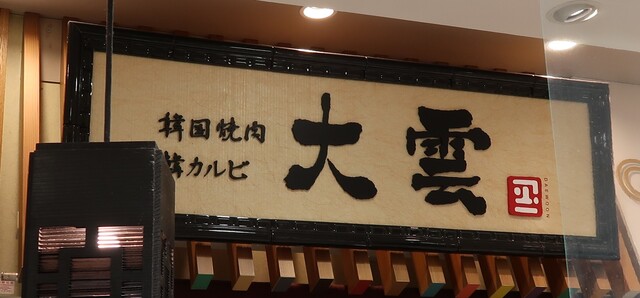 韓国焼肉
韓カルビ
大雲